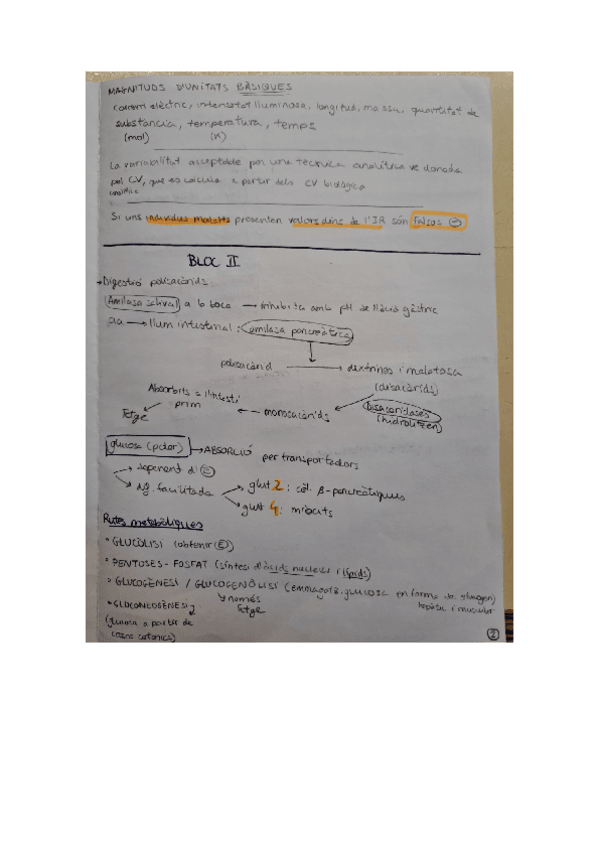 MAGNITUDS D'UNITATS BÀSIQUES
Corrent elèctric, intensitat lluminosa, longitud, massa, quantitat de
substància, temperatura, temps
(mol) (K)
La variabilitat acceptable per una tècnica analítica ve donada
pel CV, que es calcula a partir dels CV biològica
analític
Si uns individus malalts presenten valors dins de l'IR són FALSOS ⊖
BLOC II
→ Digestió polisacàrids:
Amilasa salival a la boca → inhibida amb pH de l'àcid gàstric
→ llum intestinal: amilasa pancreàtica
polisacàrid → dextrines i maltosa
(disacàrids)
Disacaridases
(hidrolitzen)
Absorbits a l'intestí
prim
monosacàrids
Fetge
glucosa (polar) → ABSORCIÓ per transportadors
→ dependent d'Ⓔ
→ dif. facilitada → glut 2: cèl. β-pancreàtiques
→ glut 4: miòcits
Rutes metabòliques
° GLUCÒLISI (obtenir Ⓔ)
° PENTOSES-FOSFAT (síntesi d'àcids nucleics i lípids)
° GLUCOGÈNESI / GLUCOGENÒLISI (emmagatz. glucosa en forma de glucogen)
hepàtic i muscular
↳ només
fetge
° GLUCONEOGÈNESI
(glucosa a partir de
2